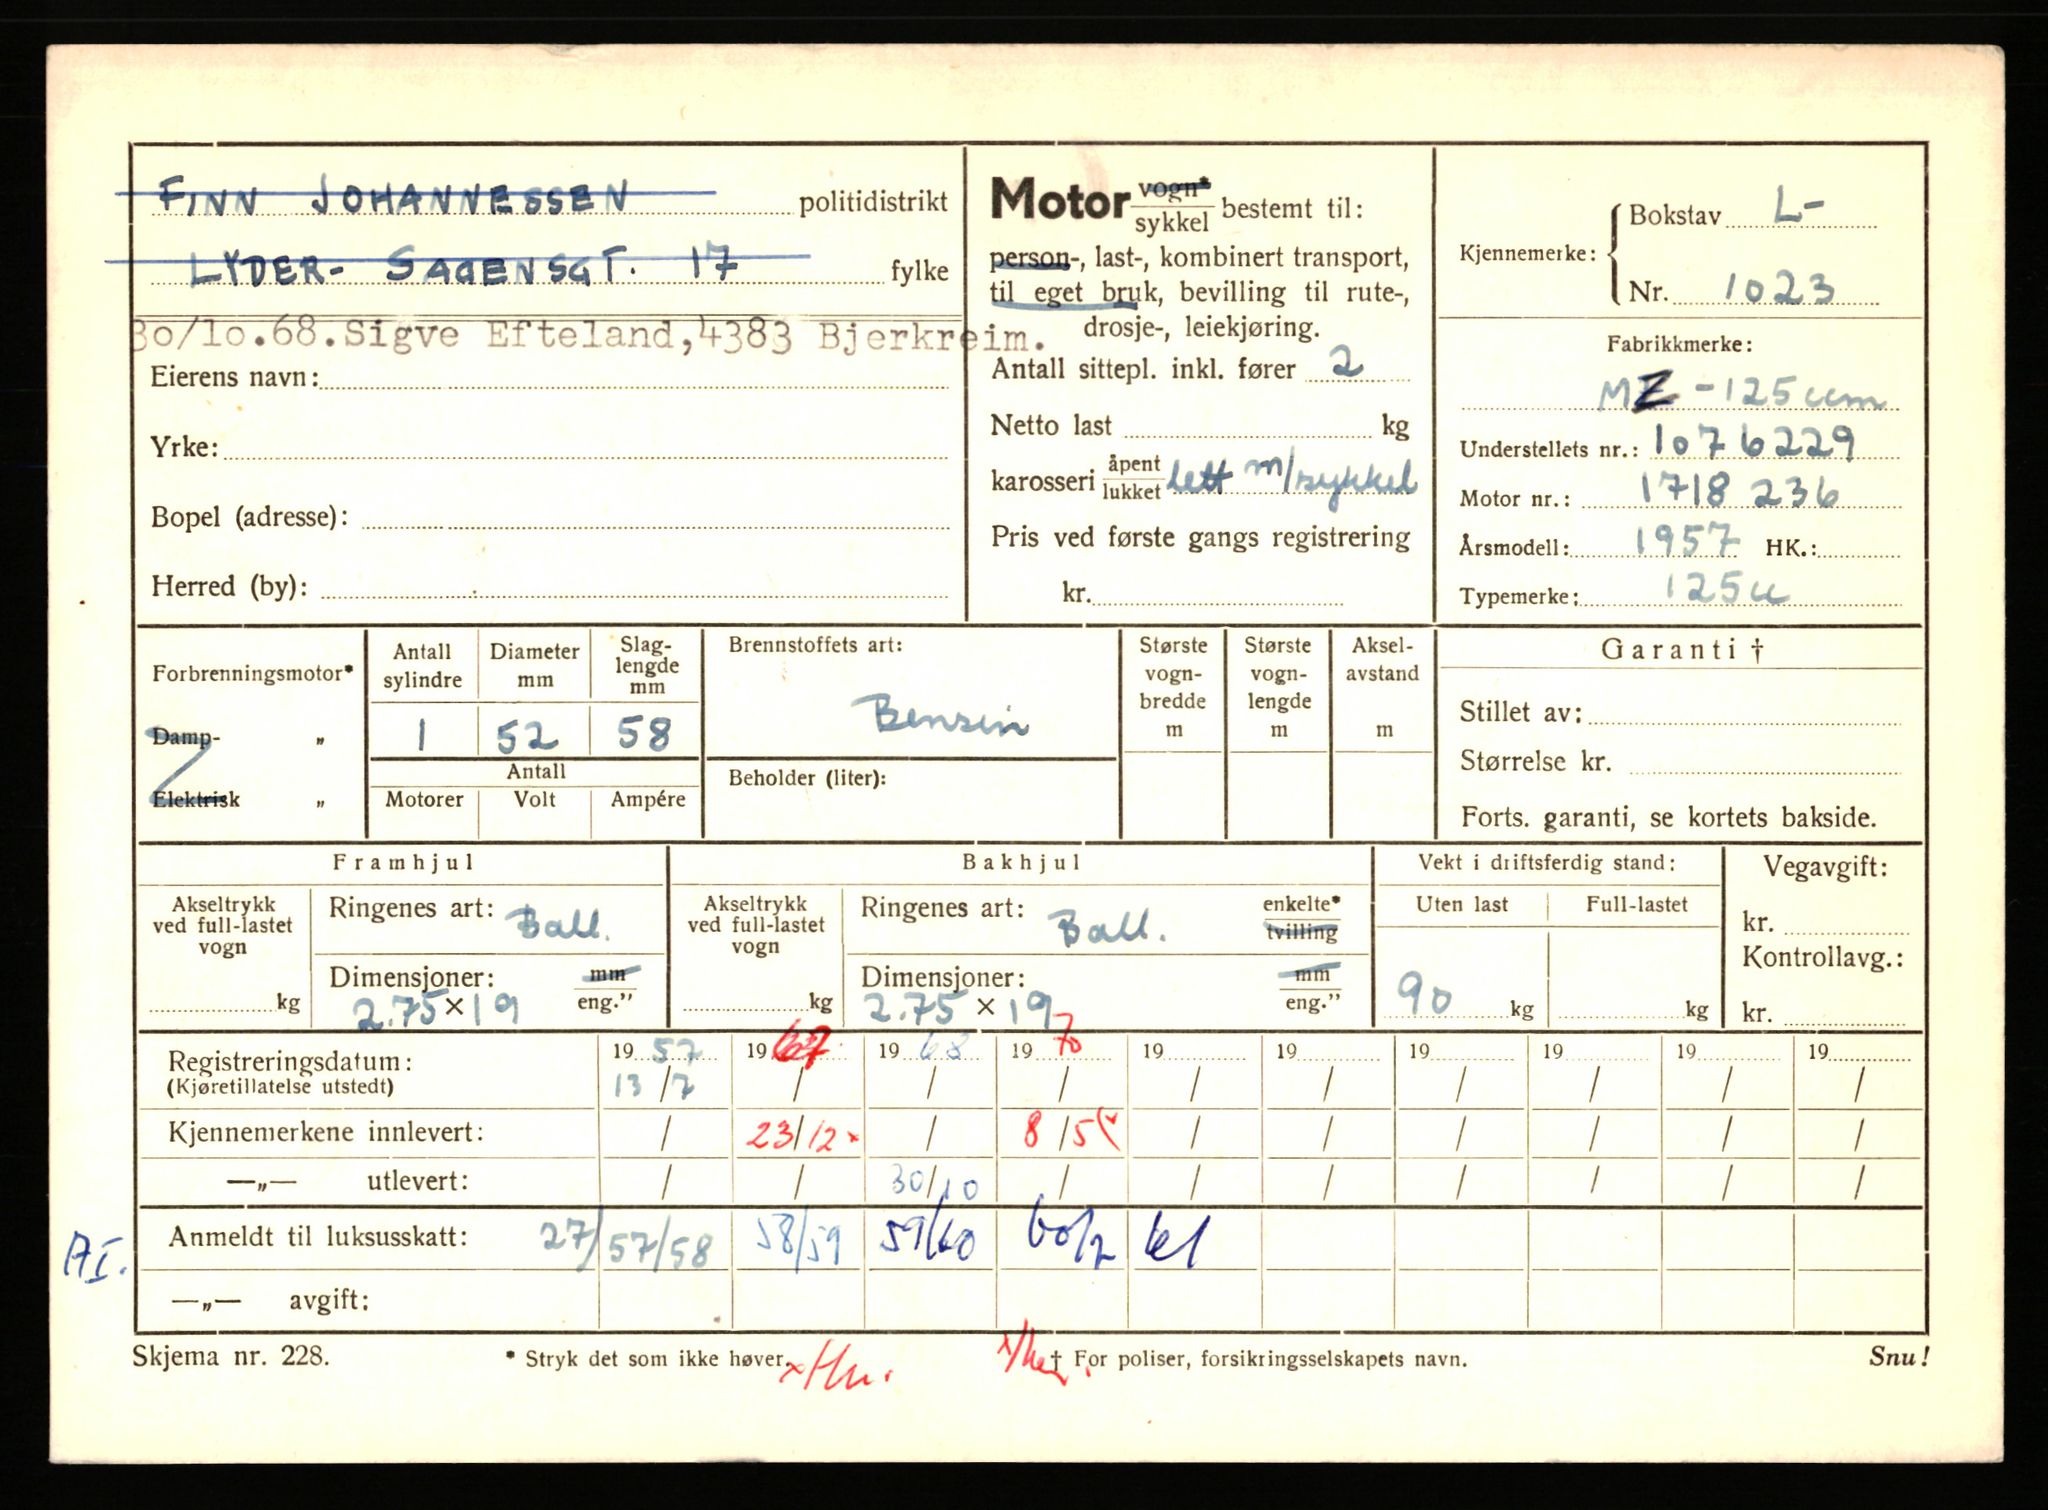 FINN JOHANNESSEN politidistrikt
LYDER- SAGENSGT. 17 fylke
30/10.68.Sigve Efteland,4383 Bjerkreim.
Eierens navn:
Yrke:
Bopel (adresse):
Herred (by):
Motor vogn* / sykkel bestemt til:
person-, last-, kombinert transport,
til eget bruk, bevilling til rute-,
drosje-, leiekjøring.
Antall sittepl. inkl. fører 2
Netto last kg
karosseri åpent / lukket lett m/sykkel
Pris ved første gangs registrering
kr.
Kjennemerke: Bokstav L-
Nr. 1023
Fabrikkmerke:
MZ - 125 ccm
Understellets nr.: 1076229
Motor nr.: 1718 236
Årsmodell: 1957 HK.:
Typemerke: 125 cc
Forbrenningsmotor*
Damp- „
Elektrisk „
Antall sylindre Diameter mm Slag-lengde mm
1 52 58
Antall
Motorer Volt Ampére
Brennstoffets art:
Bensin
Beholder (liter):
Største vogn-bredde m
Største vogn-lengde m
Aksel-avstand m
Garanti †
Stillet av:
Størrelse kr.
Forts. garanti, se kortets bakside.
Framhjul
Akseltrykk ved full-lastet vogn
kg
Ringenes art: Ball.
Dimensjoner: mm / eng.”
2.75 × 19
Bakhjul
Akseltrykk ved full-lastet vogn
kg
Ringenes art: Ball. enkelte* / tvilling
Dimensjoner: mm / eng.”
2.75 × 19
Vekt i driftsferdig stand:
Uten last Full-lastet
90 kg kg
Vegavgift:
kr.
Kontrollavg.:
kr.
Registreringsdatum: 19 57 19 67 19 68 19 70 19 19 19 19 19 19
(Kjøretillatelse utstedt) 13/7 / / / / / / / / /
Kjennemerkene innlevert: / 23/12 x / 8/5 / / / / / /
—„— utlevert: / / 30/10 / / / / / / /
Anmeldt til luksusskatt: 27/57/58 58/59 59/60 60/2 61
AI.
—„— avgift:
Skjema nr. 228. * Stryk det som ikke høver. † For poliser, forsikringsselskapets navn. Snu!